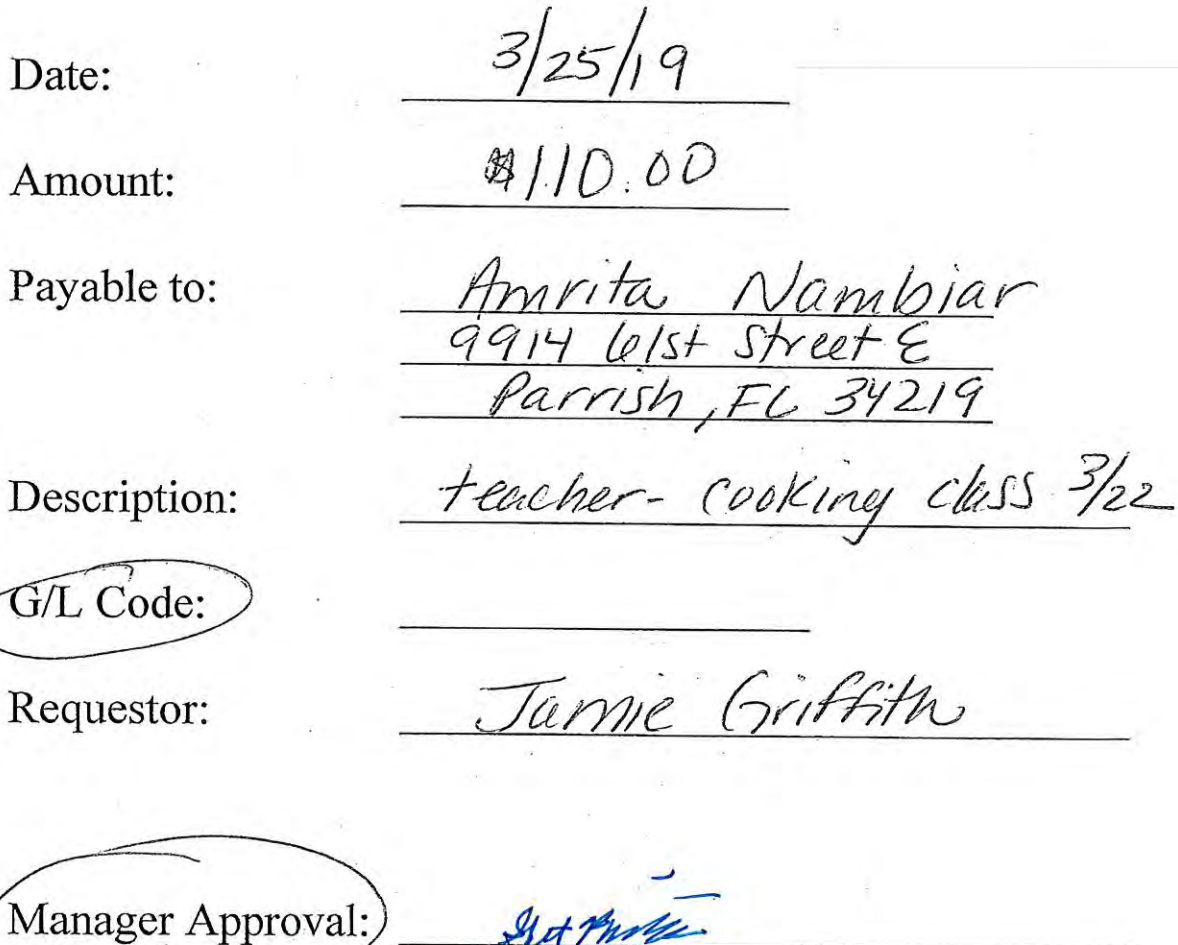 Date: 3/25/19
Amount: $110.00
Payable to: Amrita Nambiar
9914 61st Street E
Parrish, FL 34219
Description: teacher- cooking class 3/22
G/L Code:
Requestor: Jamie Griffith
Manager Approval: